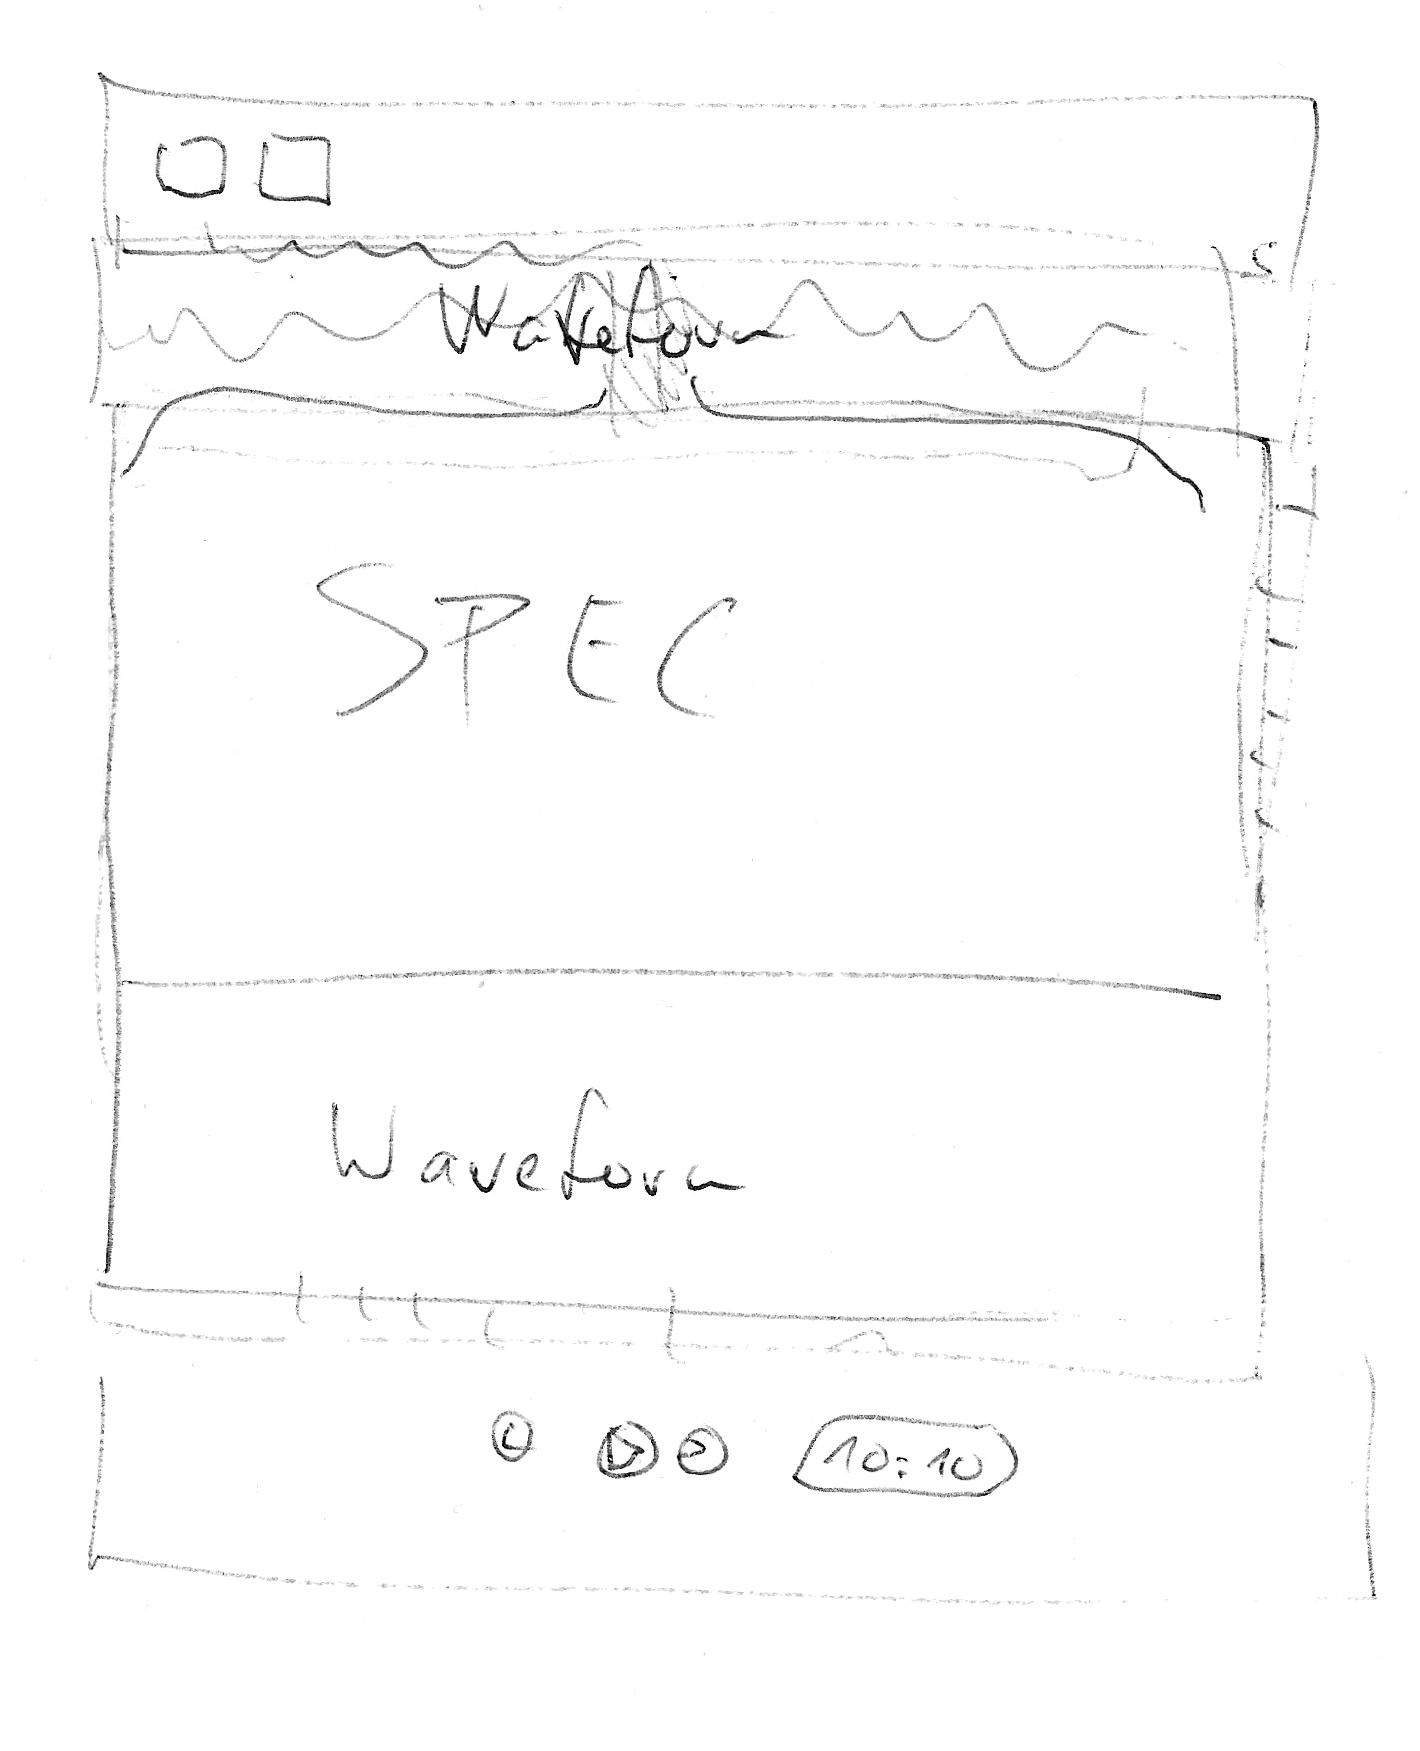 Waveform
SPEC
Waveform
10:10